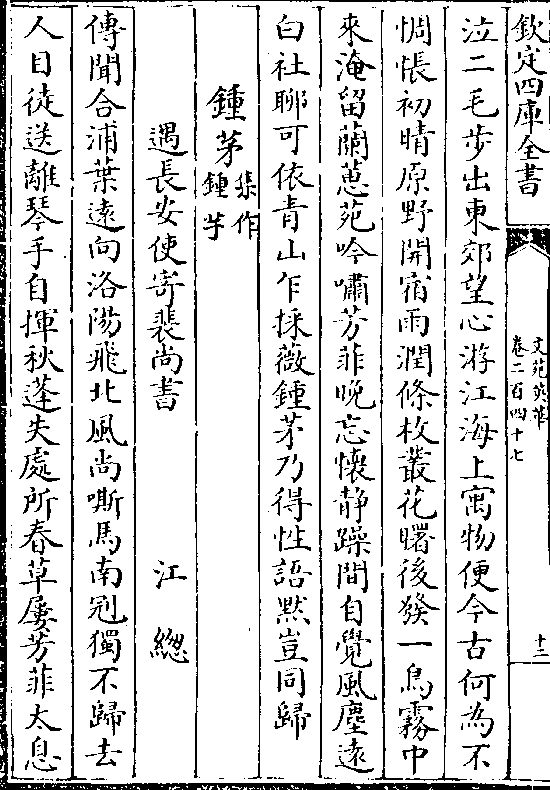 欽定四庫全書
文苑英華
卷二百四十七
十二
泣二毛步出東郊望心游江海上寓物便今古何為不
惆悵初晴原野開宿雨潤條枚叢花曙後發一鳥霧中
來淹留蘭蕙苑吟嘯芳菲晚忘懷静躁間自覺風塵遠
白社聊可依青山乍採薇鍾茅乃得性語默豈同歸
鍾茅集作鍾芋
遇長安使寄裴尚書
江總
傳聞合浦葉遠向洛陽飛北風尚嘶馬南冠獨不歸去
人目徒送離琴手自揮秋蓬失處所春草屢芳菲太息